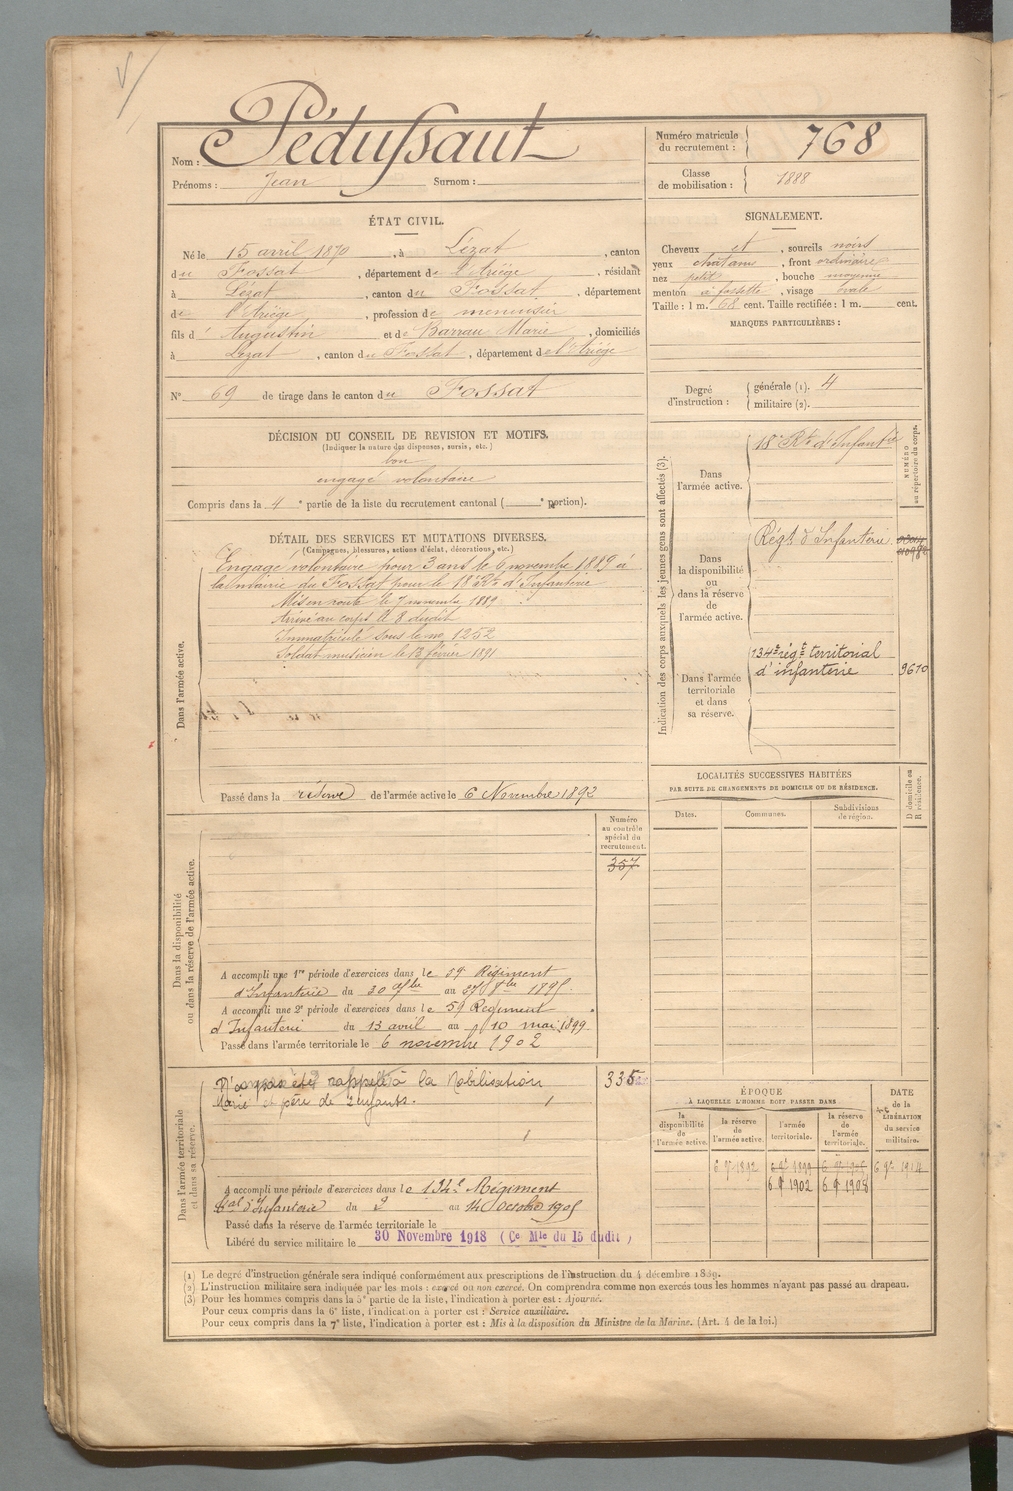 Nom : Pédussaut
Prénoms : Jean Surnom :
Numéro matricule du recrutement : 768
Classe de mobilisation : 1888
ÉTAT CIVIL.
Né le 15 avril 1870, à Lézat, canton
du Fossat, département de l'Ariège, résidant
à Lézat, canton du Fossat, département
de l'Ariège, profession de menuisier
fils d' Augustin et de Barrau Marie, domiciliés
à Lézat, canton du Fossat, département de l'Ariège
SIGNALEMENT.
Cheveux et, sourcils noirs
yeux chatains, front ordinaire
nez petit, bouche moyenne
menton à fossette, visage ovale
Taille : 1 m. 68 cent. Taille rectifiée : 1 m. cent.
MARQUES PARTICULIÈRES :
N° 69 de tirage dans le canton du Fossat
Degré d'instruction : générale (1). 4
militaire (2).
DÉCISION DU CONSEIL DE REVISION ET MOTIFS.
(Indiquer la nature des dispenses, sursis, etc.)
bon
engagé volontaire
Compris dans la 4e partie de la liste du recrutement cantonal ( e portion).
DÉTAIL DES SERVICES ET MUTATIONS DIVERSES.
(Campagnes, blessures, actions d'éclat, décorations, etc.)
Dans l'armée active.
Engagé volontaire pour 3 ans le 6 novembre 1889 à
la mairie du Fossat pour le 18e Rt d'Infanterie
Mis en route le 7 novembre 1889
Arrivé au corps le 8 dudit
Immatriculé sous le no 1252
Soldat musicien le 13 février 1891
Passé dans la réserve de l'armée active le 6 Novembre 1892
Indication des corps auxquels les jeunes gens sont affectés (3).
NUMÉRO au répertoire du corps.
Dans l'armée active.
18e Rt d'Infantie
Dans la disponibilité ou dans la réserve de l'armée active.
Régt d'Infanterie
Dans l'armée territoriale et dans sa réserve.
134e régt territorial
d'infanterie 9610
LOCALITÉS SUCCESSIVES HABITÉES
PAR SUITE DE CHANGEMENTS DE DOMICILE OU DE RÉSIDENCE.
Dates. Communes. Subdivisions de région. D domicile ou R résidence.
Numéro au contrôle spécial du recrutement.
357
Dans la disponibilité ou dans la réserve de l'armée active.
A accompli une 1re période d'exercices dans le 59 Régiment
d'Infanterie du 30 7bre au 27 8bre 1895
A accompli une 2e période d'exercices dans le 59 Régiment
d'Infanterie du 13 avril au 10 mai 1899
Passé dans l'armée territoriale le 6 novembre 1902
Dans l'armée territoriale et dans sa réserve.
N'a pas été rappelé à la Mobilisation
Marié et père de 2 enfants.
335
A accompli une période d'exercices dans le 134e Régiment
tal d'Infanterie du 2 au 14 Octobre 1905
Passé dans la réserve de l'armée territoriale le
Libéré du service militaire le 30 Novembre 1918 (Ce Mle du 15 dudit)
ÉPOQUE
A LAQUELLE L'HOMME DOIT PASSER DANS
la disponibilité de l'armée active. la réserve de l'armée active. l'armée territoriale. la réserve de l'armée territoriale.
DATE de la LIBÉRATION du service militaire.
6 9bre 1892 6 9bre 1899 6 9bre 1914
6 9 1902 6 9 1908
(1) Le degré d'instruction générale sera indiqué conformément aux prescriptions de l'instruction du 4 décembre 1889.
(2) L'instruction militaire sera indiquée par les mots : exercé ou non exercé. On comprendra comme non exercés tous les hommes n'ayant pas passé au drapeau.
(3) Pour les hommes compris dans la 5e partie de la liste, l'indication à porter est : Ajourné.
Pour ceux compris dans la 6e liste, l'indication à porter est : Service auxiliaire.
Pour ceux compris dans la 7e liste, l'indication à porter est : Mis à la disposition du Ministre de la Marine. (Art. 4 de la loi.)